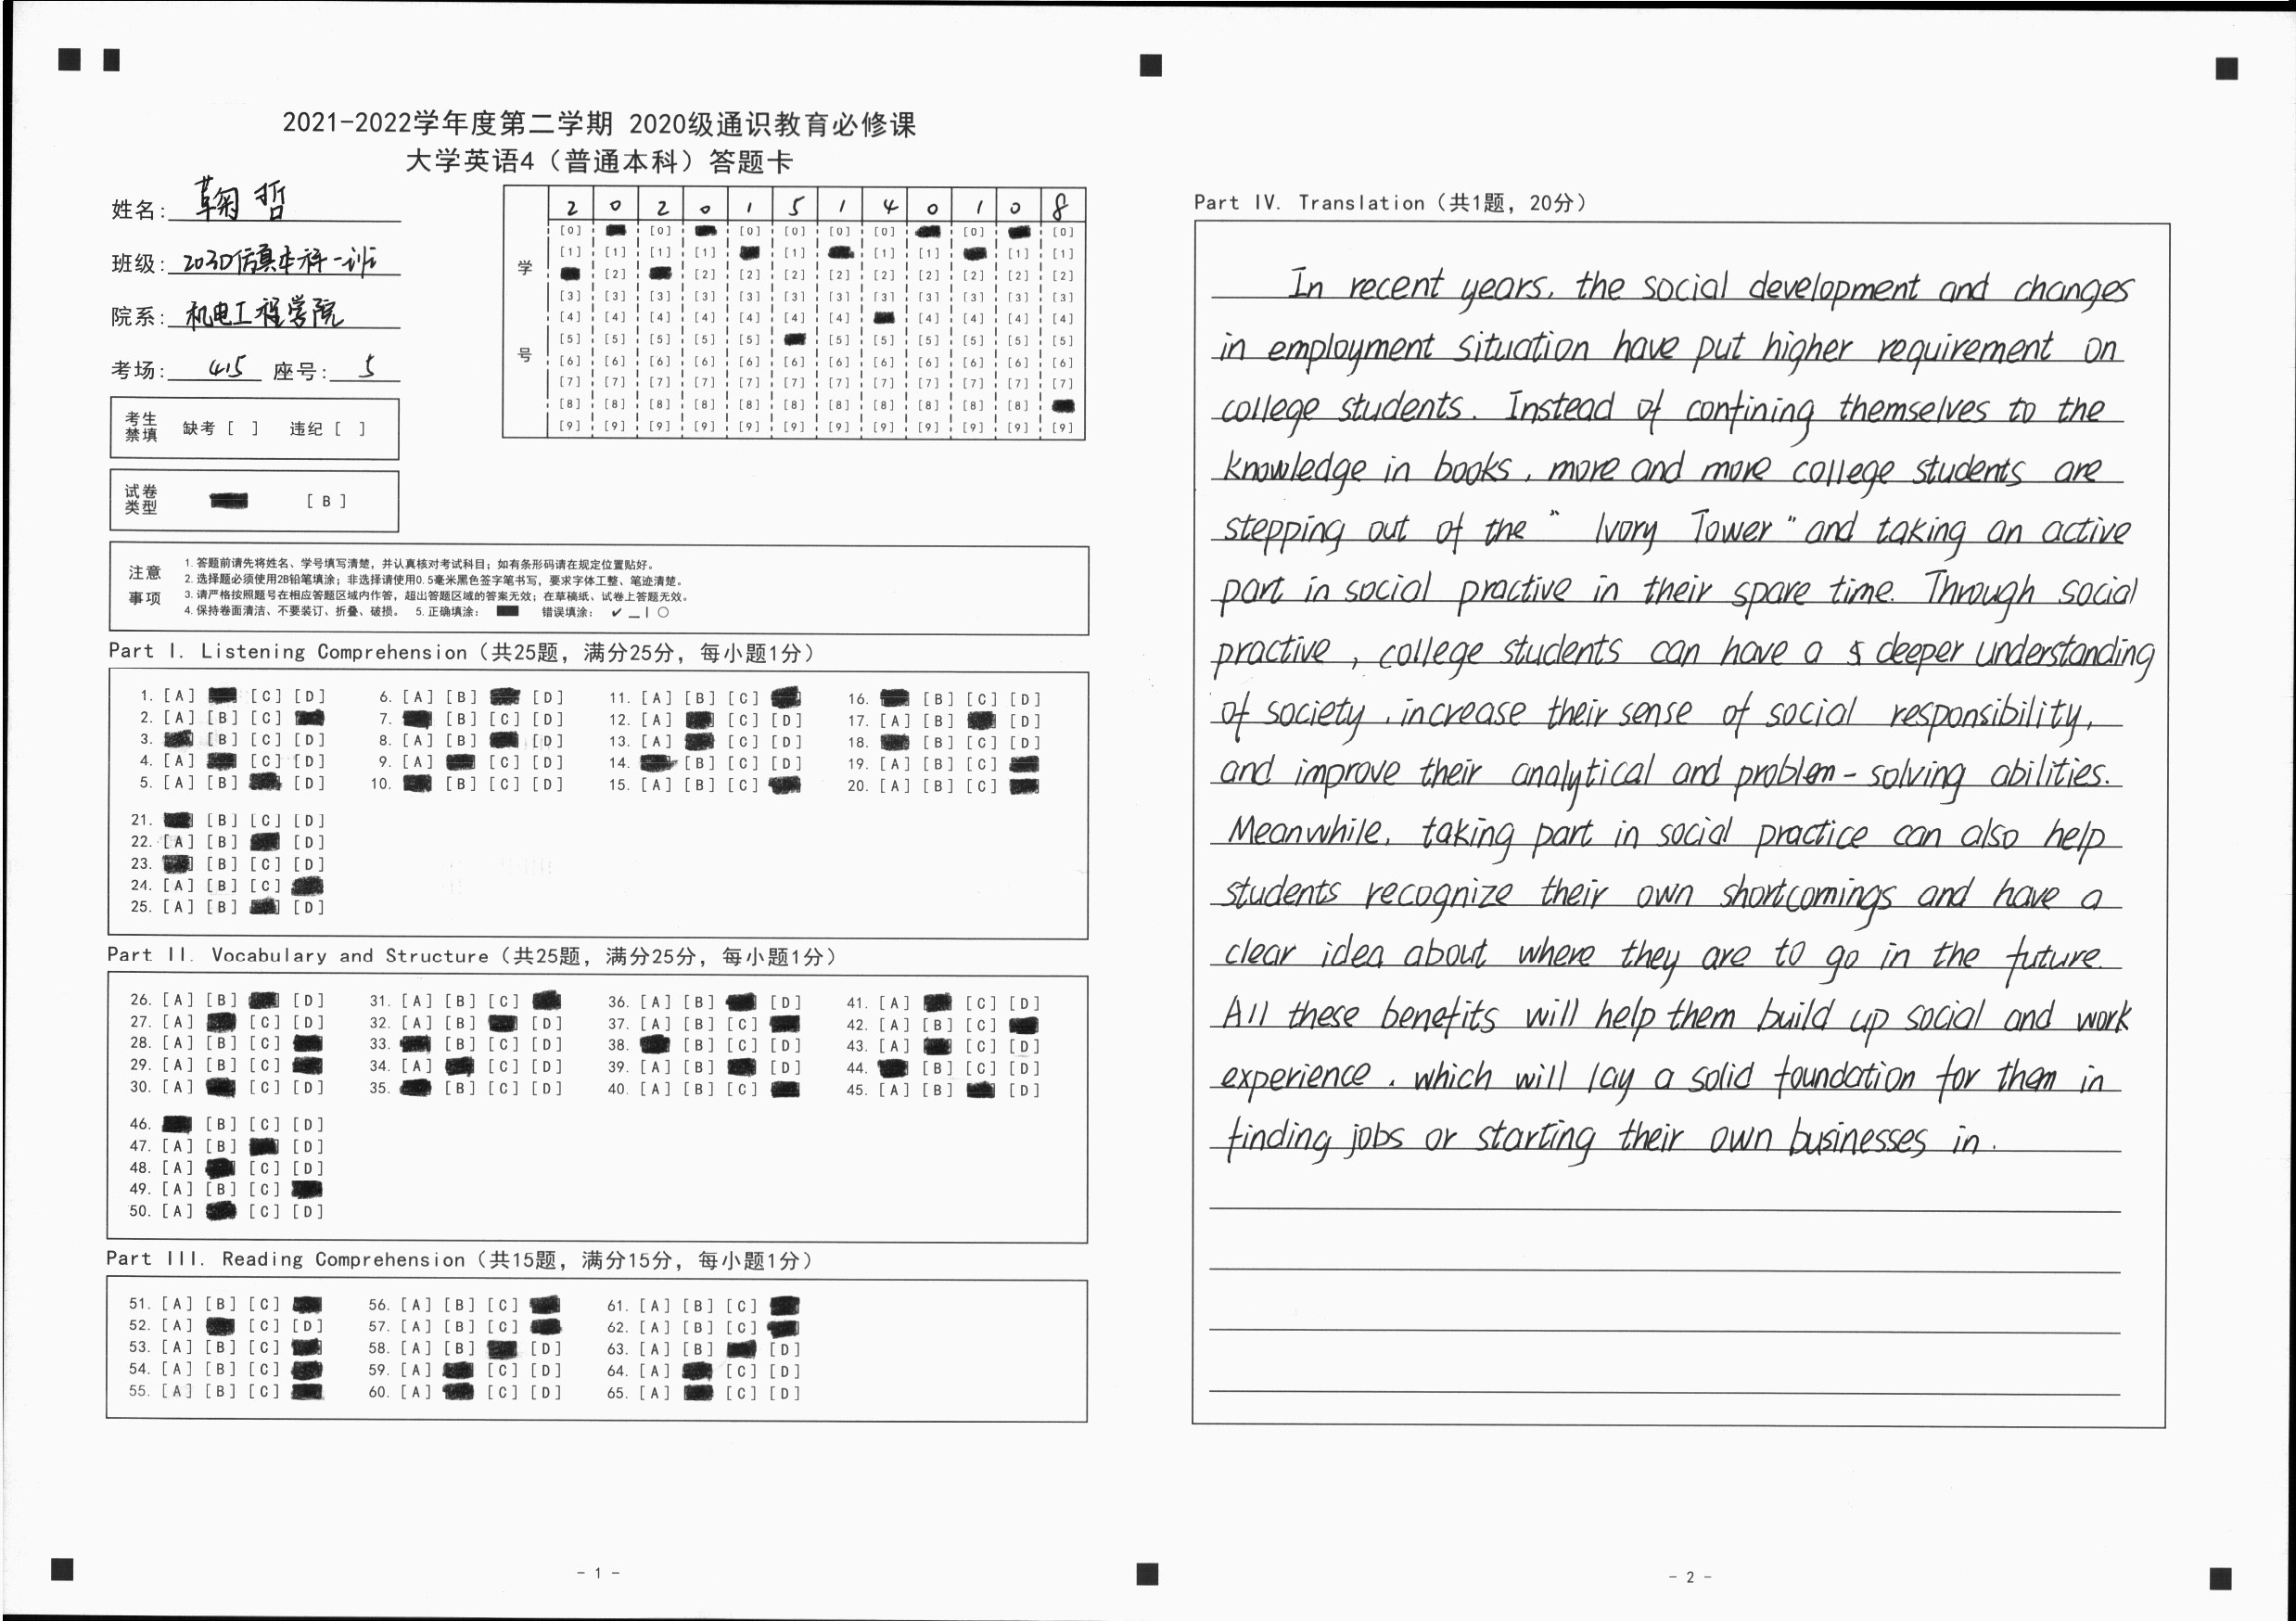 2021-2022学年度第二学期 2020级通识教育必修课
大学英语4（普通本科）答题卡
姓名: 鞠哲
班级: 203D仿真本科一班
院系: 机电工程学院
考场: 415 座号: 5
考生禁填 缺考 [ ] 违纪 [ ]
试卷类型 [ B ]
学号
2 0 2 0 1 5 1 4 0 1 0 8
[0] [0] [0] [0] [0] [0] [0] [0]
[1] [1] [1] [1] [1] [1] [1] [1] [1]
[2] [2] [2] [2] [2] [2] [2] [2] [2] [2]
[3] [3] [3] [3] [3] [3] [3] [3] [3] [3] [3] [3]
[4] [4] [4] [4] [4] [4] [4] [4] [4] [4] [4]
[5] [5] [5] [5] [5] [5] [5] [5] [5] [5] [5]
[6] [6] [6] [6] [6] [6] [6] [6] [6] [6] [6] [6]
[7] [7] [7] [7] [7] [7] [7] [7] [7] [7] [7] [7]
[8] [8] [8] [8] [8] [8] [8] [8] [8] [8] [8]
[9] [9] [9] [9] [9] [9] [9] [9] [9] [9] [9] [9]
注意事项
1. 答题前请先将姓名、学号填写清楚，并认真核对考试科目；如有条形码请在规定位置贴好。
2. 选择题必须使用2B铅笔填涂；非选择请使用0.5毫米黑色签字笔书写，要求字体工整、笔迹清楚。
3. 请严格按照题号在相应答题区域内作答，超出答题区域的答案无效；在草稿纸、试卷上答题无效。
4. 保持卷面清洁、不要装订、折叠、破损。 5. 正确填涂： 错误填涂：
Part I. Listening Comprehension（共25题，满分25分，每小题1分）
1. [A] [C] [D] 6. [A] [B] [D] 11. [A] [B] [C] 16. [B] [C] [D]
2. [A] [B] [C] 7. [B] [C] [D] 12. [A] [C] [D] 17. [A] [B] [D]
3. [B] [C] [D] 8. [A] [B] [D] 13. [A] [C] [D] 18. [B] [C] [D]
4. [A] [C] [D] 9. [A] [C] [D] 14. [B] [C] [D] 19. [A] [B] [C]
5. [A] [B] [D] 10. [B] [C] [D] 15. [A] [B] [C] 20. [A] [B] [C]
21. [B] [C] [D]
22. [A] [B] [D]
23. [B] [C] [D]
24. [A] [B] [C]
25. [A] [B] [D]
Part II. Vocabulary and Structure（共25题，满分25分，每小题1分）
26. [A] [B] [D] 31. [A] [B] [C] 36. [A] [B] [D] 41. [A] [C] [D]
27. [A] [C] [D] 32. [A] [B] [D] 37. [A] [B] [C] 42. [A] [B] [C]
28. [A] [B] [C] 33. [B] [C] [D] 38. [B] [C] [D] 43. [A] [C] [D]
29. [A] [B] [C] 34. [A] [C] [D] 39. [A] [B] [D] 44. [B] [C] [D]
30. [A] [C] [D] 35. [B] [C] [D] 40. [A] [B] [C] 45. [A] [B] [D]
46. [B] [C] [D]
47. [A] [B] [D]
48. [A] [C] [D]
49. [A] [B] [C]
50. [A] [C] [D]
Part III. Reading Comprehension（共15题，满分15分，每小题1分）
51. [A] [B] [C] 56. [A] [B] [C] 61. [A] [B] [C]
52. [A] [C] [D] 57. [A] [B] [C] 62. [A] [B] [C]
53. [A] [B] [C] 58. [A] [B] [D] 63. [A] [B] [D]
54. [A] [B] [C] 59. [A] [C] [D] 64. [A] [C] [D]
55. [A] [B] [C] 60. [A] [C] [D] 65. [A] [C] [D]
- 1 -
Part IV. Translation（共1题，20分）
In recent years, the social development and changes
in employment situation have put higher requirement on
college students. Instead of confining themselves to the
knowledge in books, more and more college students are
stepping out of the " Ivory Tower " and taking an active
part in social practive in their spare time. Through social
practive, college students can have a deeper understanding
of society, increase their sense of social responsibility,
and improve their analytical and problem-solving abilities.
Meanwhile, taking part in social practice can also help
students recognize their own shortcomings and have a
clear idea about where they are to go in the future.
All these benefits will help them build up social and work
experience, which will lay a solid foundation for them in
finding jobs or starting their own businesses in.
- 2 -